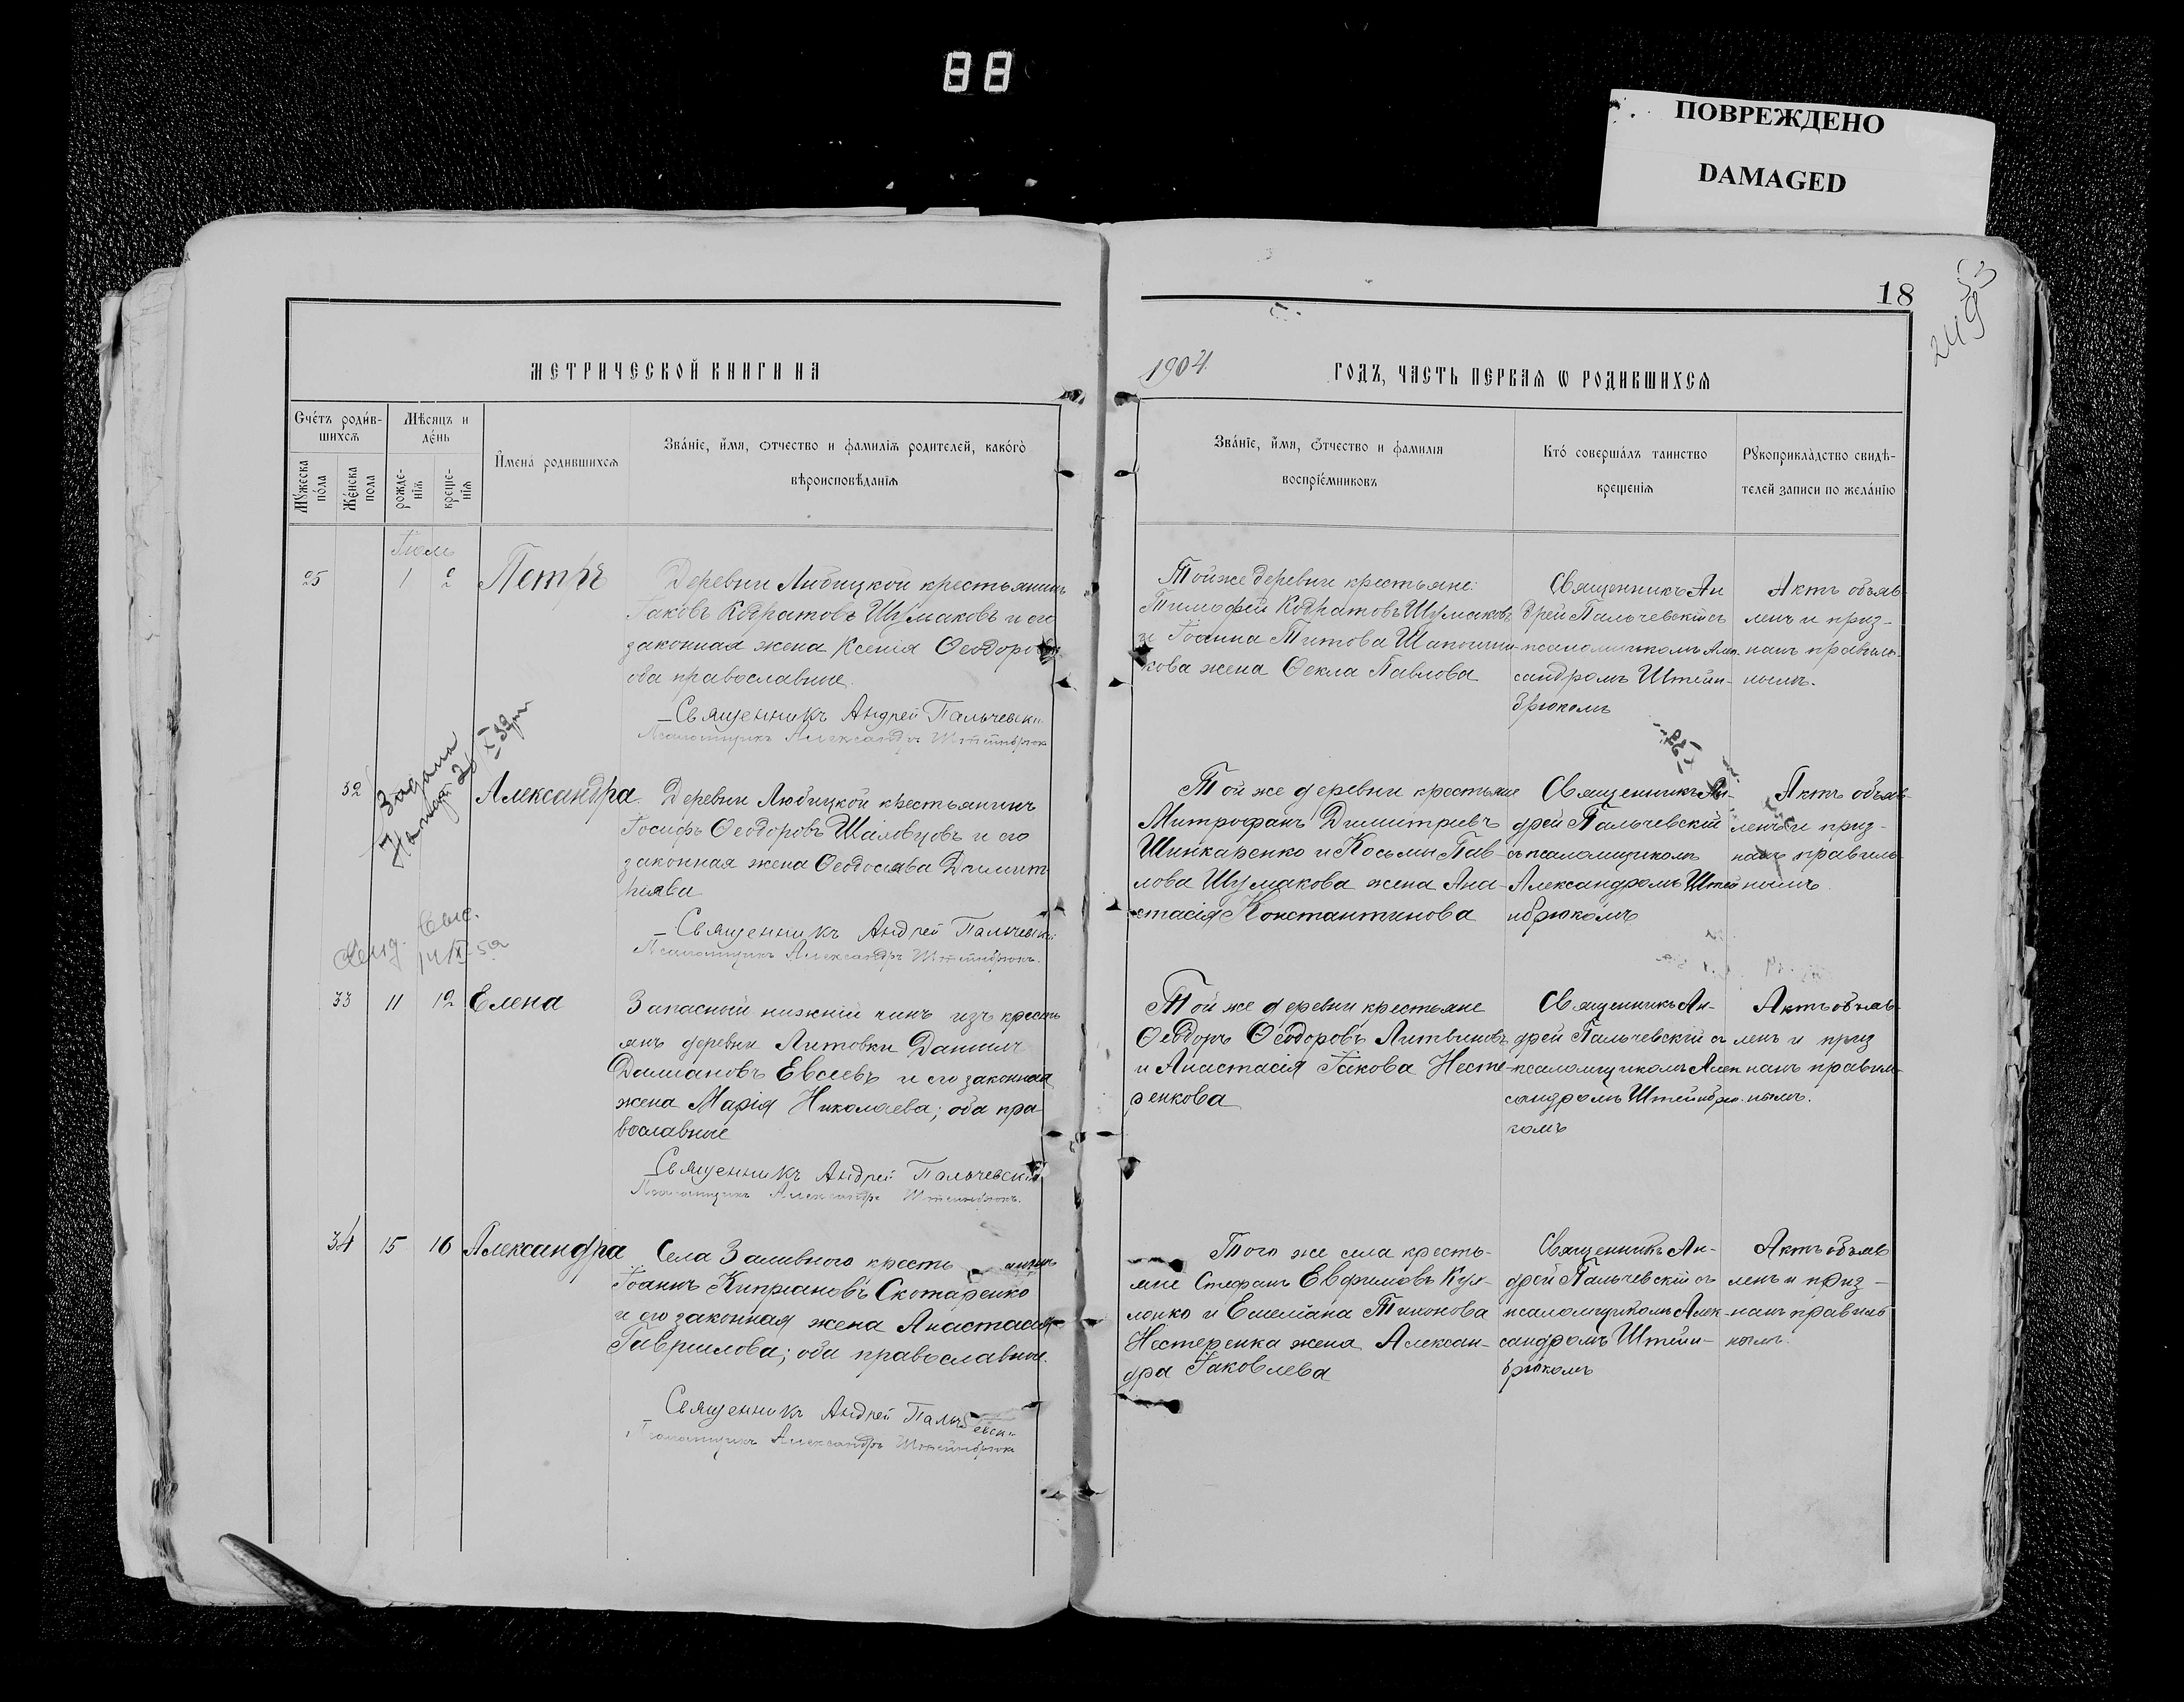 88
ПОВРЕЖДЕНО
DAMAGED
18
53
249
МЕТРИЧЕСКОЙ КНИГИ НА
1904
ГОДЪ, ЧАСТЬ ПЕРВАЯ Ѡ РОДИВШИХСЯ
Счетъ родив-
шихся
Мужеска
пола
Женска
пола
Мѣсяцъ и
день
рожде-
нія
креще-
нія
Имена родившихся
Званіе, имя, отчество и фамилія родителей, какого
вѣроисповѣданія
Званіе, имя, отчество и фамилія
воспріемниковъ
Кто совершалъ таинство
крещенія
Рукоприкладство свидѣ-
телей записи по желанію
Іюль
25 1 2 Петръ
Деревни Любицкой крестьянинъ
Іаковъ Кодратовъ Шумаковъ и его
законная жена Ксенія Ѳеодорова
оба православные.
Священникъ Андрей Пальчевскій
Псаломщикъ Александръ Штейнбрюкъ
Той же деревни крестьяне:
Тимофей Кодратовъ Шумаковъ
и Іоанна Титова Шапошни-
кова жена Ѳекла Павлова
Священникъ Ан
дрей Пальчевскій съ
псаломщикомъ Алек-
сандромъ Штейн-
брюкомъ
Актъ объяв-
ленъ и приз-
нанъ правиль-
нымъ.
32 Александра
Деревни Любицкой крестьянинъ
Іосифъ Ѳеодоровъ Шаловцовъ и его
законная жена Димит
Священникъ Андрей Пальчевскій
Псаломщикъ Александръ Штейнбрюкъ.
Той же деревни крестьяне
Митрофанъ Димитріевъ
Шинкаренко и Косьмы Пав-
лова Шумакова жена Ана-
стасія Константинова
Священникъ Ан-
дрей Пальчевскій
съ псаломщикомъ
Александромъ Штей
нбрюкомъ
Актъ объяв-
ленъ и приз-
нанъ правиль-
нымъ
33 11 12 Елена
Запасной нижній чинъ изъ кресть
янъ деревни Литовки Даніилъ
Даміановъ Евсеевъ и его законная
жена Марія Николаева; оба пра
вославные
Священникъ Андрей Пальчевскій
Псаломщикъ Александръ Штейнбрюкъ.
Той же деревни крестьяне
Ѳеодоръ Ѳеодоровъ Литвиновъ
и Анастасія Іакова Несте-
ренкова
Священникъ Ан-
дрей Пальчевскій съ
псаломщикомъ Алек
сандромъ Штейнбрю-
комъ
Актъ объяв-
ленъ и приз
нанъ правиль-
нымъ.
34 15 16 Александра
Села Заливного крестьянинъ
Іоаннъ Кипріановъ Скотаренко
и его законная жена Анастасія
Гавриилова; оба православные.
Священникъ Андрей Пальчевскій
Псаломщикъ Александръ Штейнбрюкъ
Того же села кресть-
яне Стефанъ Евфимовъ Кул-
ленко и Емеліана Тихонова
Нестеренка жена Алексан-
дра Іаковлева
Священникъ Ан-
дрей Пальчевскій съ
псаломщикомъ Алек-
сандромъ Штейн-
брюкомъ
Актъ объяв
ленъ и приз-
нанъ правиль
нымъ.